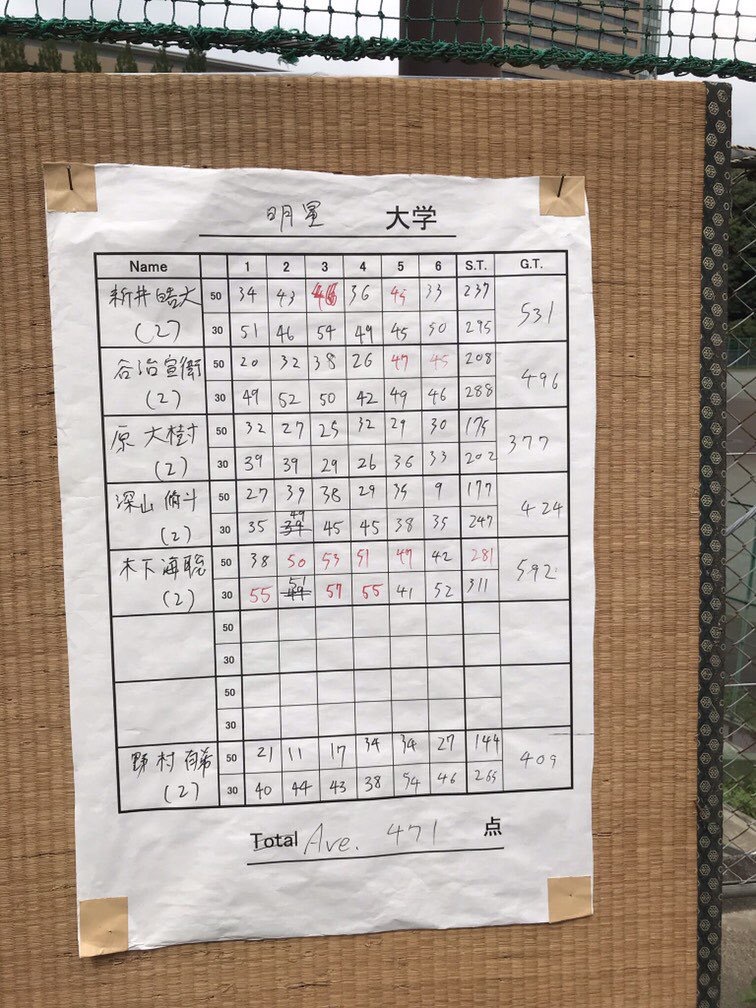 明星 大学
Name 1 2 3 4 5 6 S.T. G.T.
新井皓大 50 34 43 46 36 45 33 237
(2) 30 51 46 54 49 45 50 295 531
谷治宣 50 20 32 38 26 47 45 208
(2) 30 49 52 50 42 49 46 288 496
原 大樹 50 32 27 25 32 29 30 175
(2) 30 39 39 29 26 36 33 202 377
深山 脩斗 50 27 39 38 29 35 9 177
49
(2) 30 35 39 45 45 38 35 247 424
木下海聡 50 38 50 53 51 47 42 281
51
(2) 30 55 49 57 55 41 52 311 592
50
30
50
30
野村 有希 50 21 11 17 34 34 27 144
(2) 30 40 44 43 38 54 46 265 409
Total Ave. 471 点